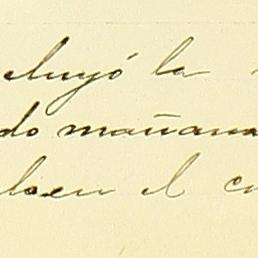 cluyó la
do mañana
loen el